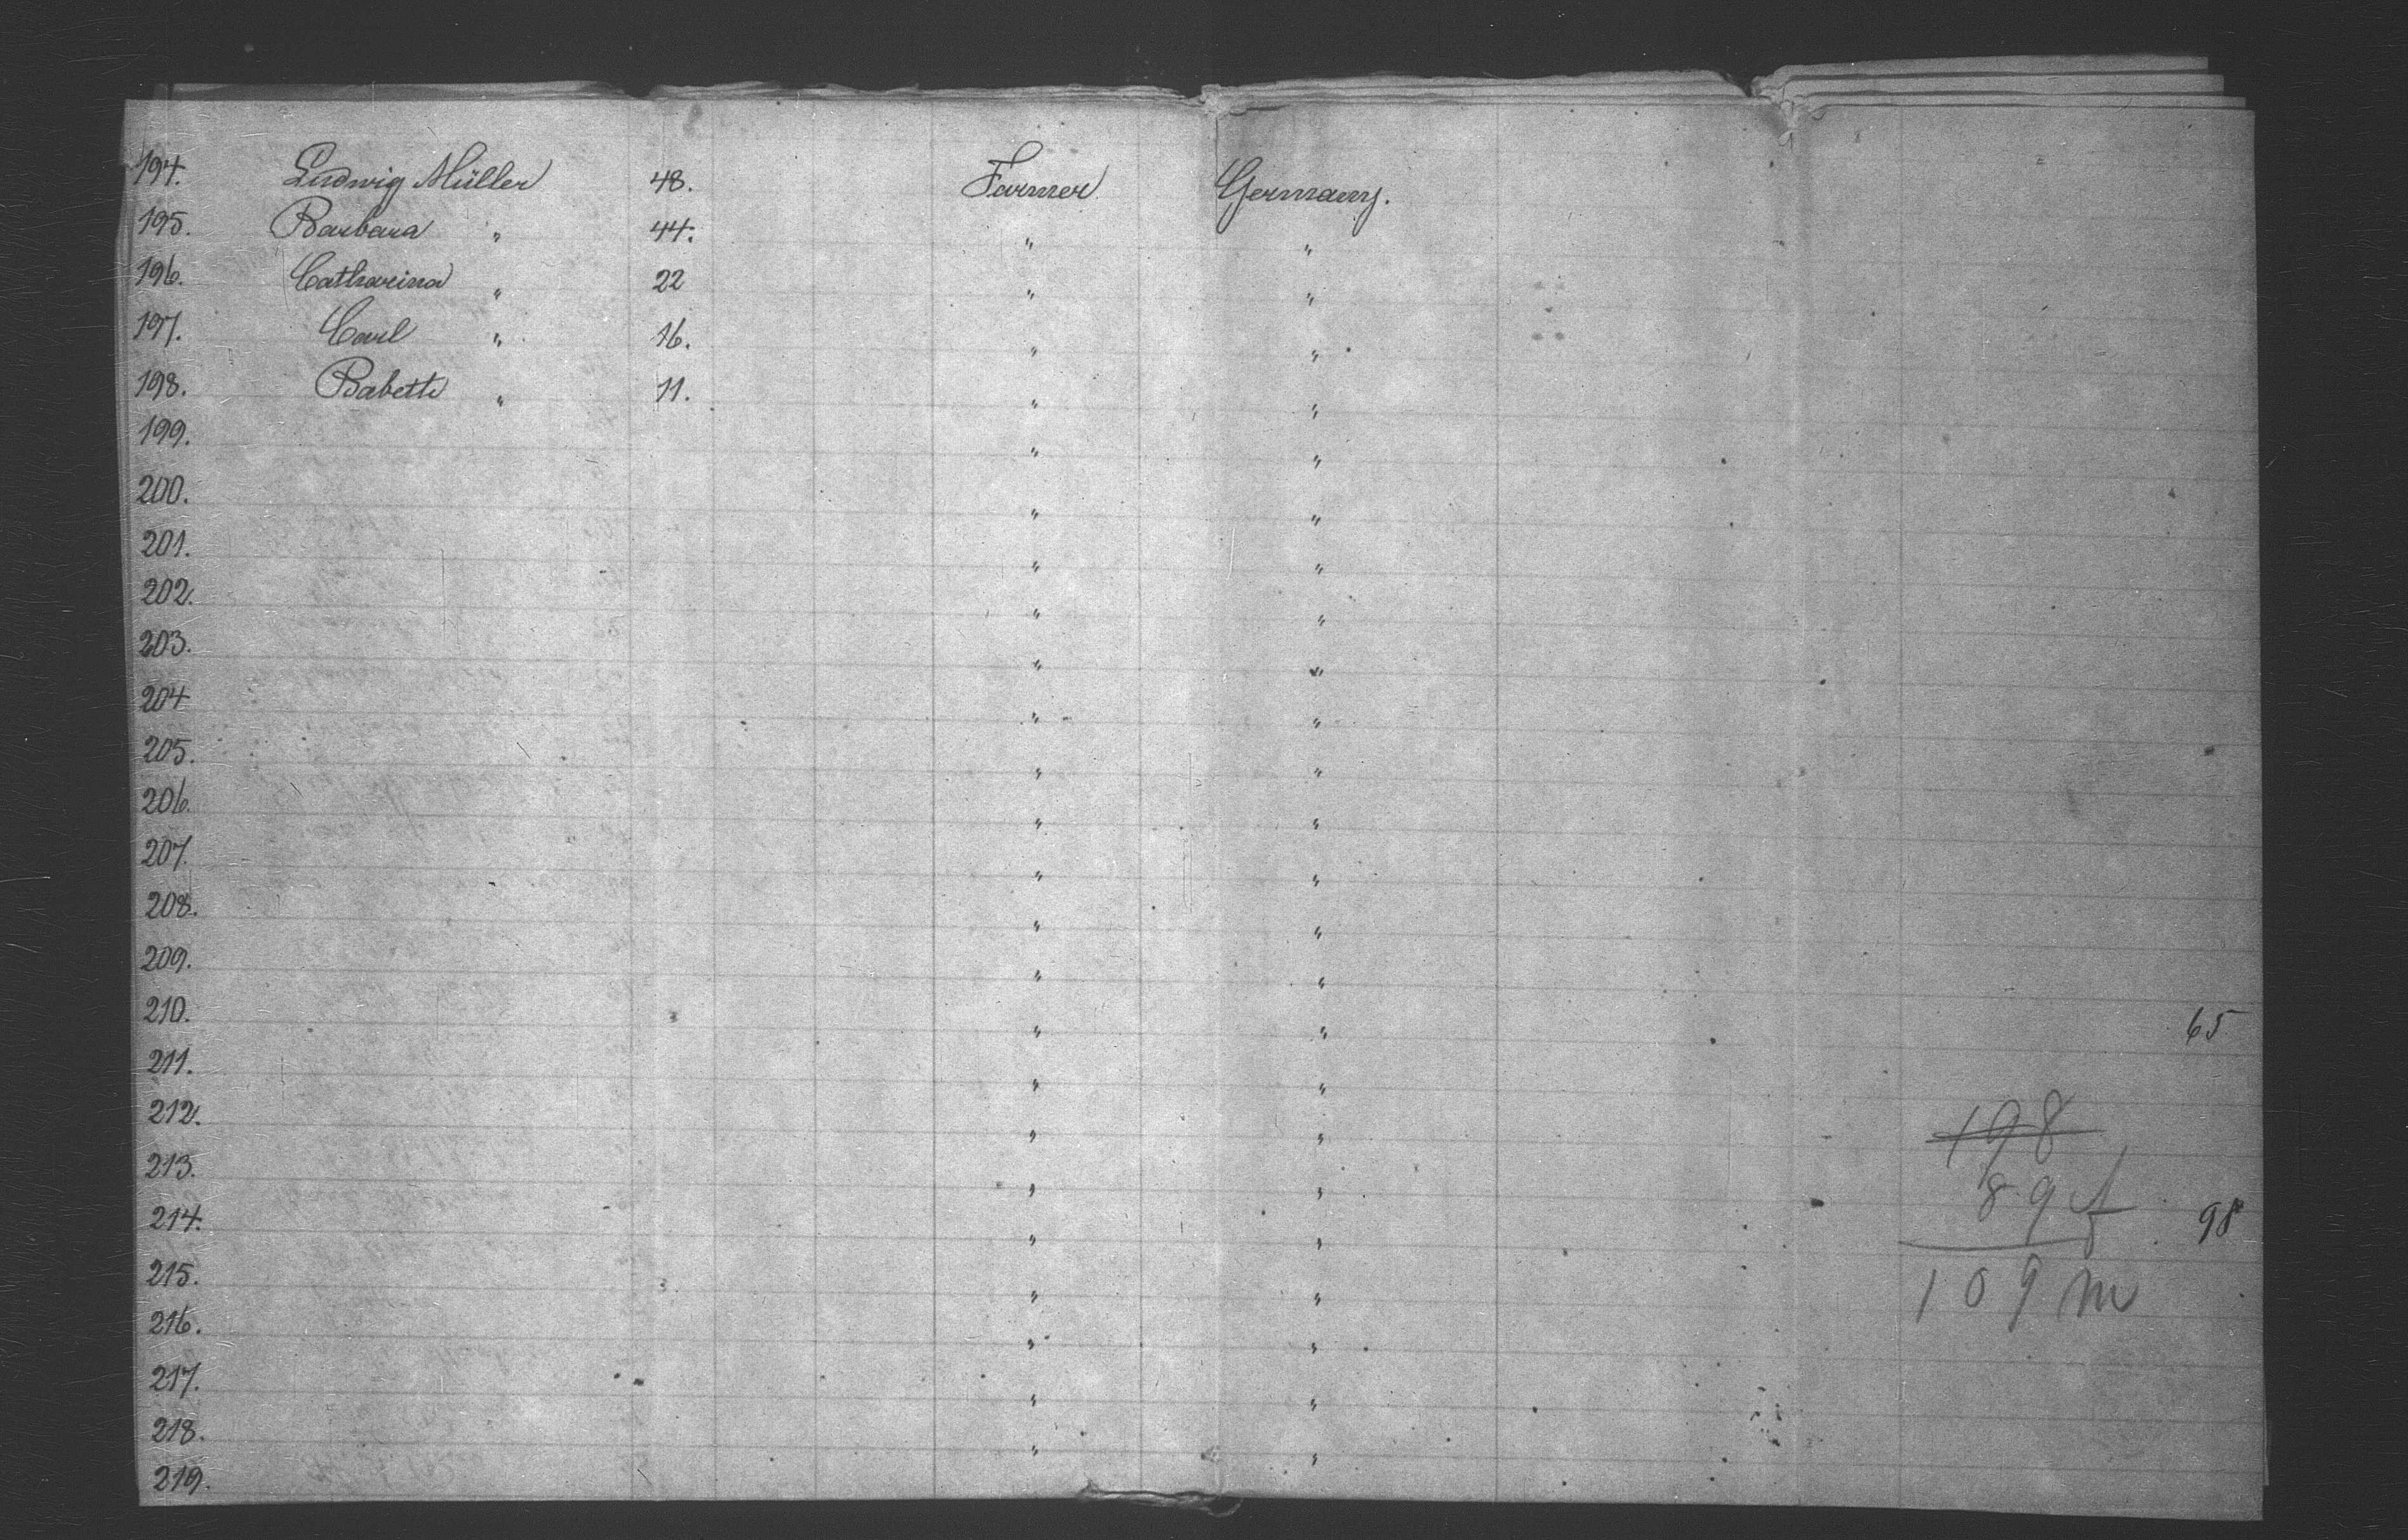 194. Ludwig Müller 48. Farmer Germany.
195. Barbara " 44. " "
196. Catharina " 22 " "
197. Carl " 16. " "
198. Babette " 11. " "
199. " "
200. " "
201. " "
202. " "
203. " "
204 " "
205. " "
206. " "
207. " "
208. " "
209. " "
210. " " 65
211. " "
212. " " 198
213. " " 89 f
214. " " 98
215. " " 109 m
216. " "
217. " "
218. " "
219.